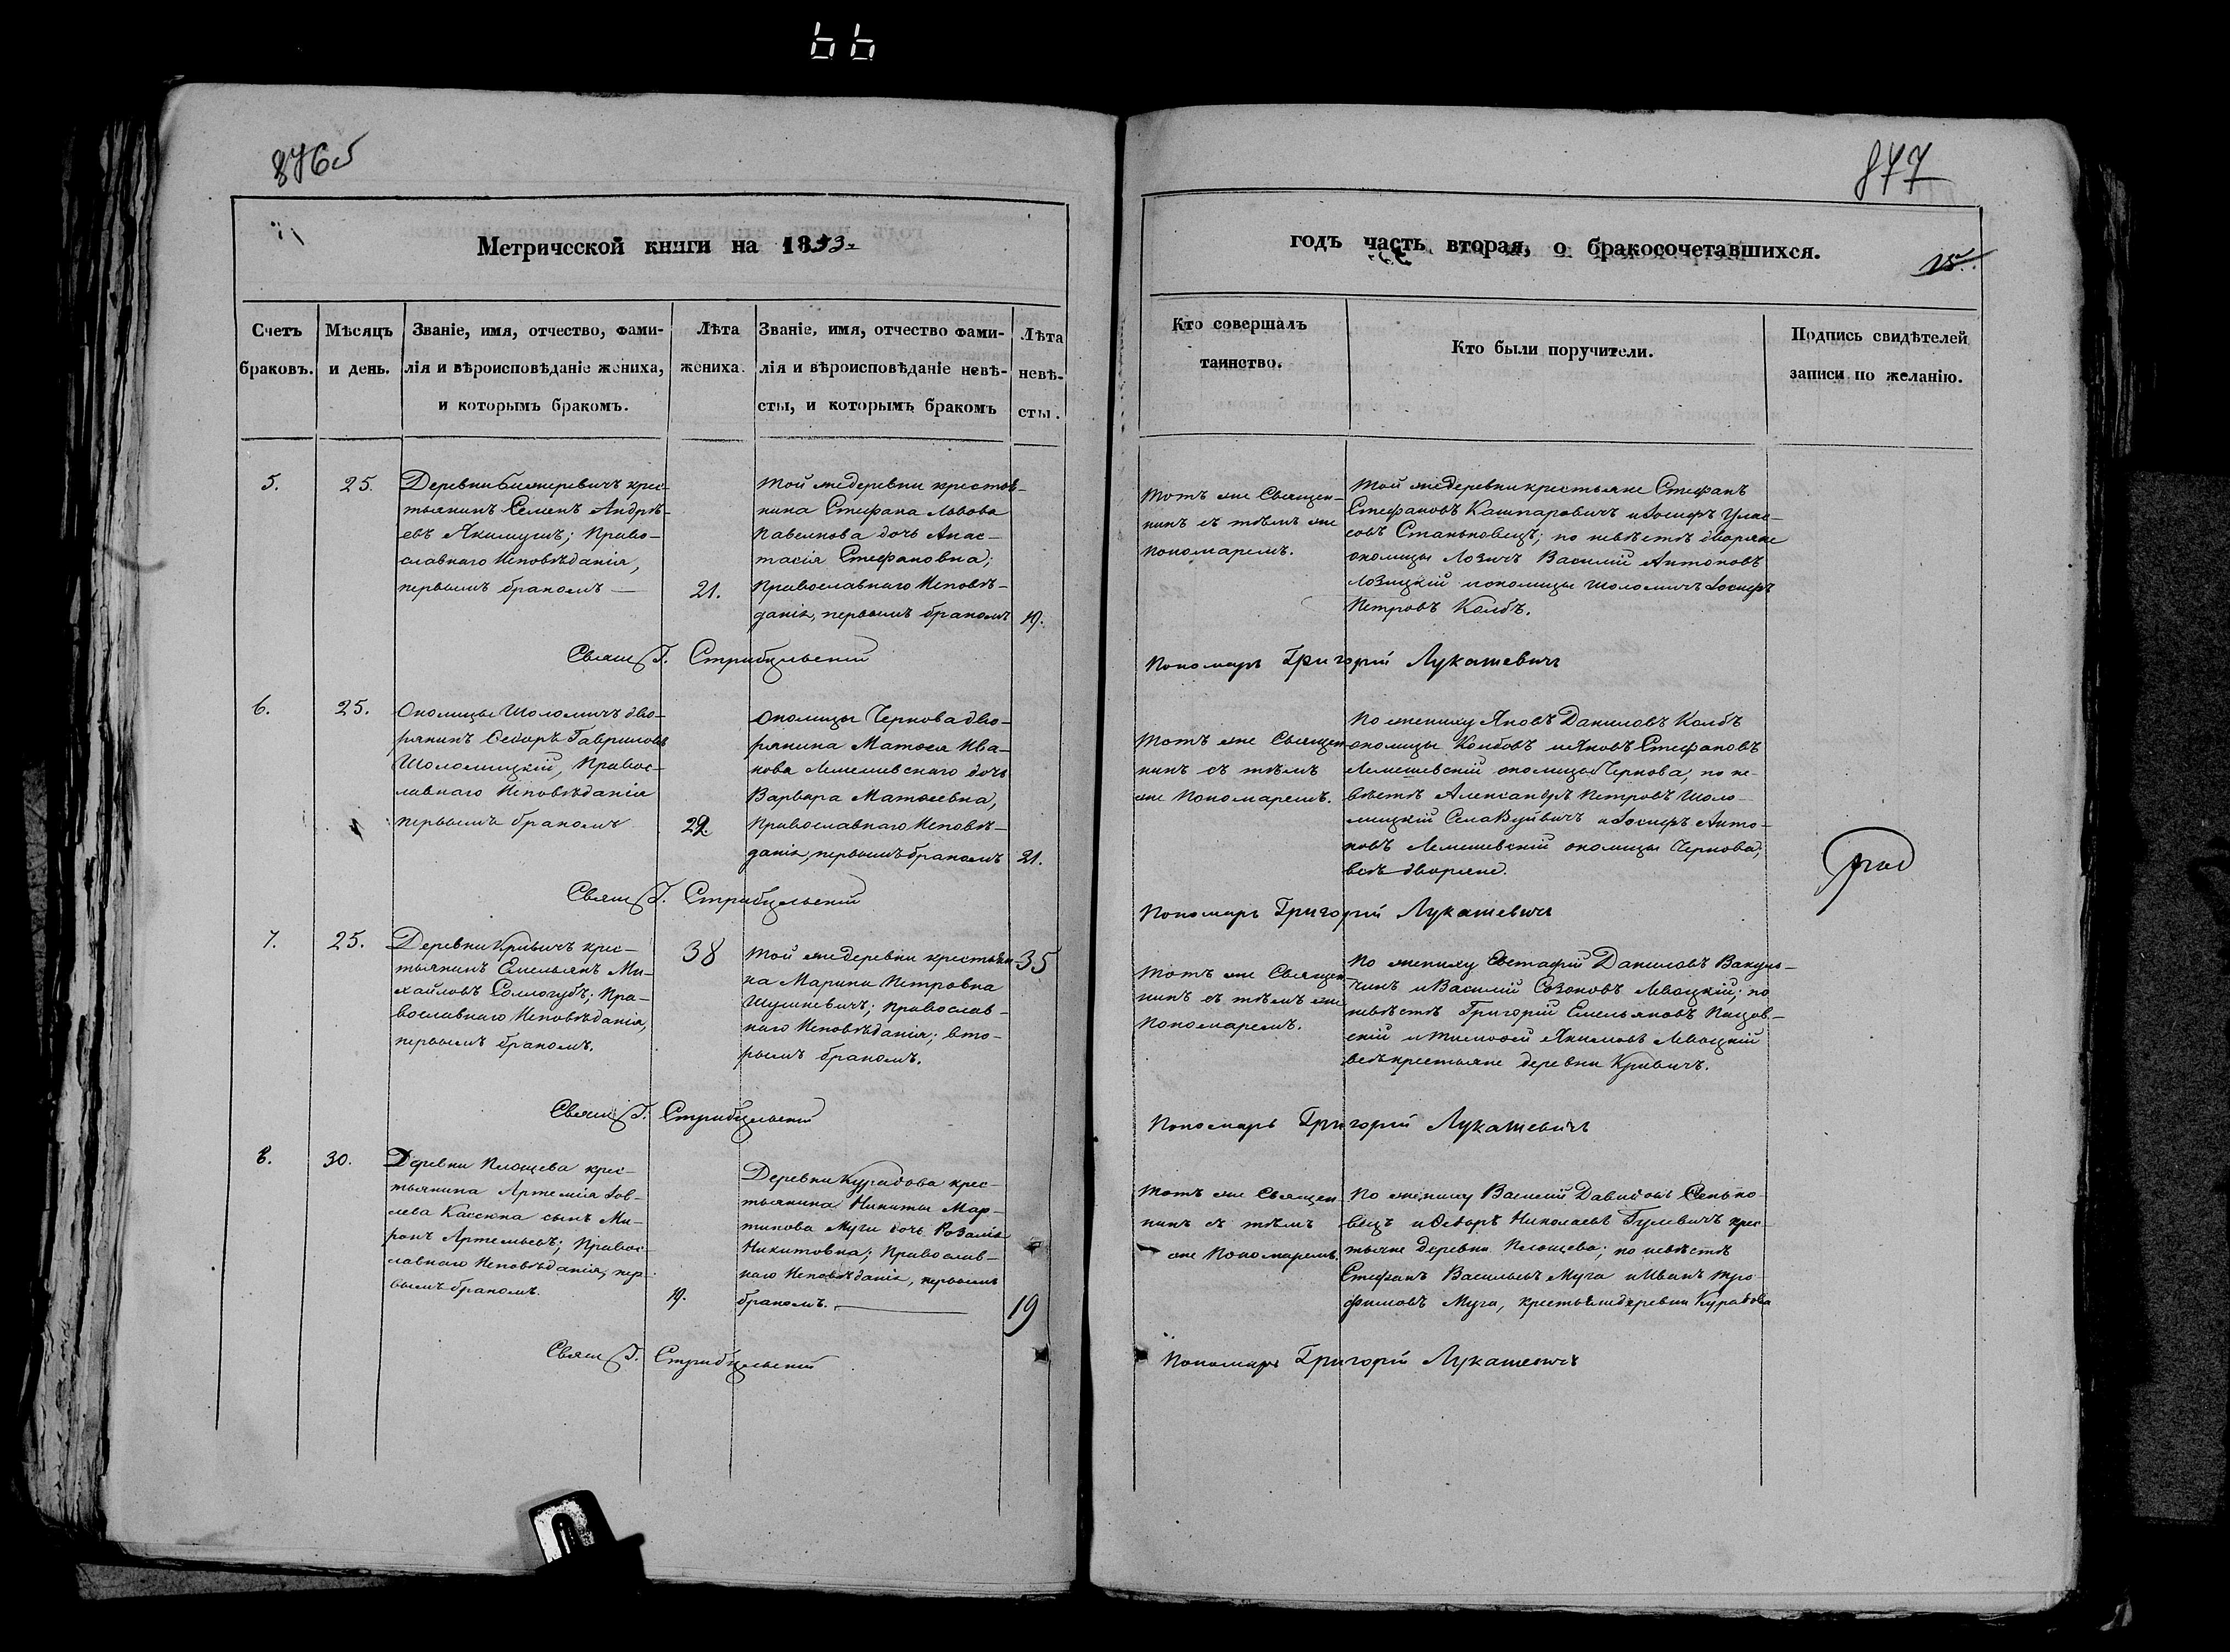 66
876об
877
Метрической книги на 1853.
годъ часть вторая, о бракосочетавшихся.
15.
Счетъ
браковъ.
Мѣсяцъ
и день.
Званіе, имя, отчество, фами-
лія и вѣроисповѣданіе жениха,
и которымъ бракомъ.
Лѣта
жениха.
Званіе, имя, отчество фами-
лія и вѣроисповѣданіе невѣ-
сты, и которымъ бракомъ
Лѣта
невѣ-
сты.
Кто совершалъ
таинство.
Кто были поручители.
Подпись свидѣтелей
записи по желанію.
5.
25.
Деревни крес-
тьянинъ Семенъ Андрѣ-
евъ Якимчикъ; Право-
славнаго Исповѣданія,
первымъ бракомъ —
21.
Той же деревни крестья-
нина Стефана Львова
дочь Анас-
тасія Стефановна;
Православнаго Исповѣ-
данія, первымъ бракомъ
19.
Тотъ же Священ-
никъ съ тѣмъ же
пономаремъ.
Той же деревни крестьяне Стефанъ
Стефановъ Кашпаровичъ и Іосифъ Улас-
овъ Станьковецъ; по невѣстѣ дворяне
околицы Лозичъ Василій Антоновъ
Лозицкій и околицы Шоломичъ Іосифъ
Петровъ Колбъ.
Свящ Г. Стрибульскій
Пономарь Григорій Лукашевичъ
6.
25.
Околицы Шоломичъ дво-
рянинъ Ѳедоръ Гавриловъ
Шоломицкій, Правос-
лавнаго Исповѣданія
первымъ бракомъ
22.
Околицы Чернова дво-
рянина Матѳея Ива-
нова Лемешевскаго дочь
Варвара Матѳеевна,
Православнаго Исповѣ-
данія, первымъ бракомъ
21.
Тотъ же Священ-
никъ съ тѣмъ
же Пономаремъ.
По жениху Яковъ Даниловъ Колбъ
околицы Колбовъ и Яковъ Стефановъ
Лемешевскій околицы Чернова; по не-
вѣстѣ Александръ Петровъ Шоло-
мицкій Села Вуйвичъ и Іосифъ Анто-
новъ Лемешевскій околицы Чернова;
всѣ дворяне.
Свящ Г. Стрибульскій
Пономарь Григорій Лукашевичъ
7.
25.
Деревни Кривичъ крес-
тьянинъ Емельянъ Ми-
хайловъ Соллогубъ; Пра-
вославнаго Исповѣданія,
первымъ бракомъ.
38
Той же деревни крестьян-
ка Марина Петровна
Шушкевичъ; Православ-
наго Исповѣданія; вто-
рымъ бракомъ.
35
Тотъ же Священ-
никъ съ тѣмъ же
Пономаремъ.
По жениху Евстафій Даниловъ Вакуль-
чикъ и Василій Созоновъ Левоцкій; по
невѣстѣ Григорій Емельяновъ Пацов-
скій и Тимофей Якимовъ Левоцкій
всѣ крестьяне деревни Кривичъ.
Свящ Г. Стрибульскій
Пономарь Григорій Лукашевичъ
8.
30.
Деревни Площева крес-
тьянина Артемія Іов-
лева сынъ Ми-
ронъ Артемьевъ; Правос-
лавнаго Исповѣданія, пер-
вымъ бракомъ.
19.
Деревни Курадова крес-
тьянина Никиты Мар-
тинова Муги дочь Розалія
Никитовна; Православ-
наго Исповѣданія, первымъ
бракомъ.
19
Тотъ же Священ-
никъ съ тѣмъ
же Пономаремъ.
По жениху Василій Давидовъ Сенько-
вецъ и Ѳедоръ Николаевъ Гулевичъ крес-
тьяне деревни Площева; по невѣстѣ
Стефанъ Васильевъ Муга и Иванъ Тро-
фимовъ Муга, крестьяне деревни Курадова
Свящ Г. Стрибульскій
Пономарь Григорій Лукашевичъ